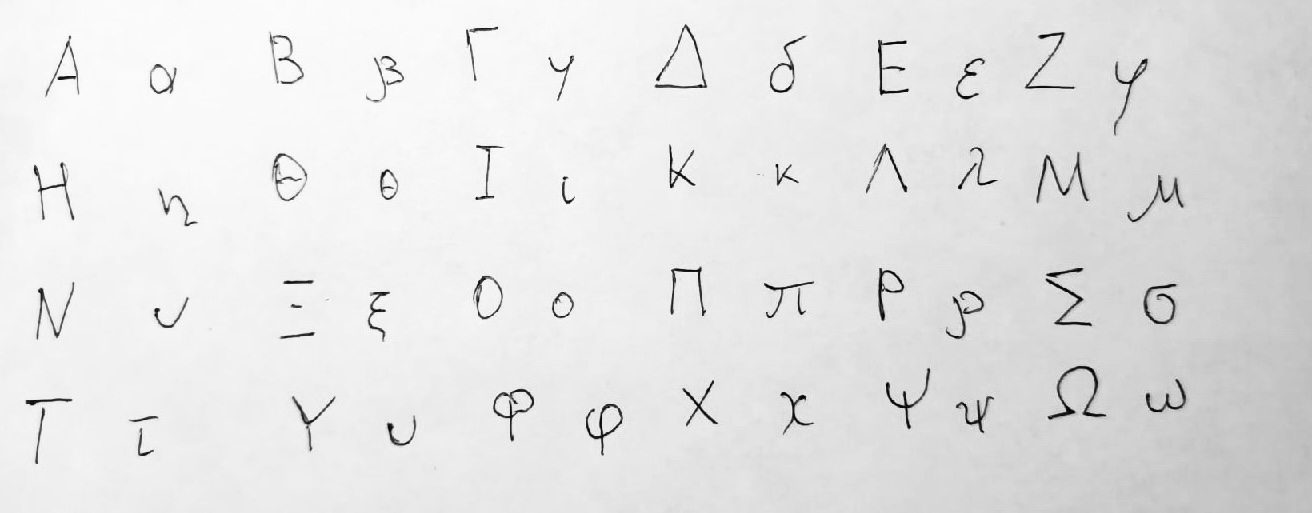 Α α Β β Γ γ Δ δ Ε ε Ζ φ
Η η Θ θ Ι ι Κ κ Λ λ Μ μ
Ν ν Ξ ξ Ο ο Π π Ρ ρ Σ σ
Τ τ Υ υ Φ φ Χ χ Ψ ψ Ω ω